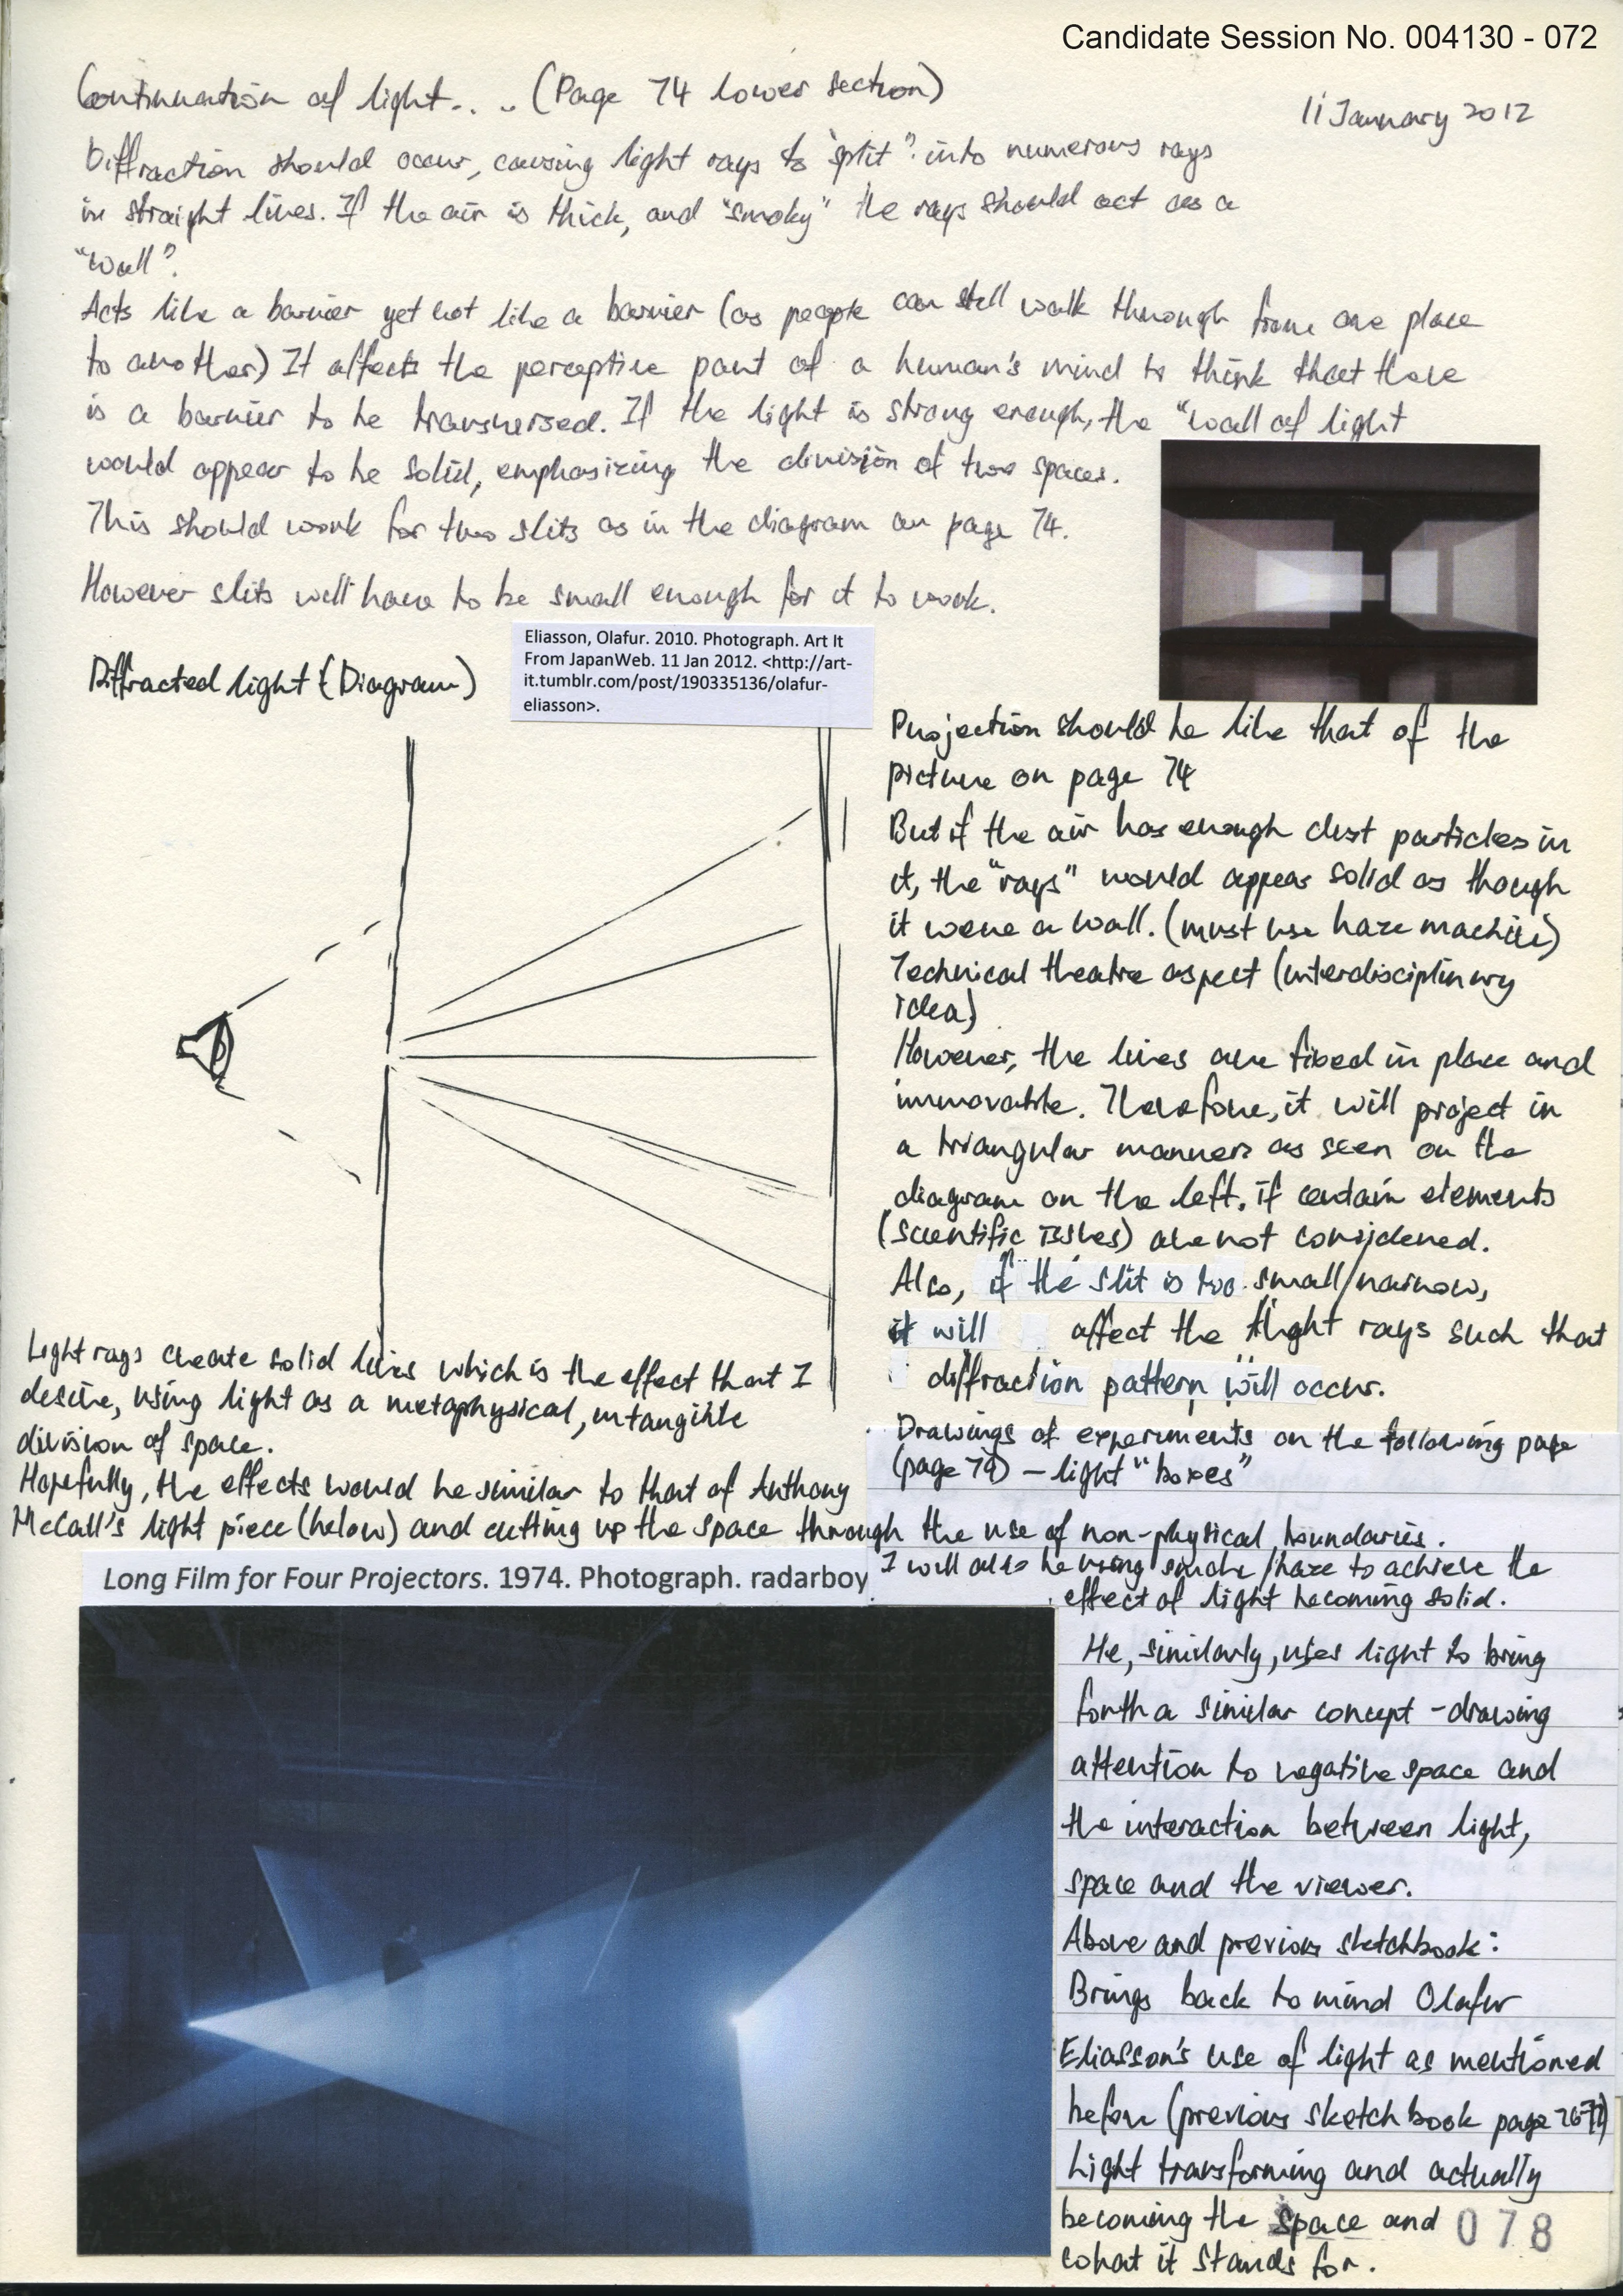 Candidate Session No. 004130 - 072
Continuation of light... (Page 74 lower section)
11 January 2012
Diffraction should occur, causing light rays to "split" into numerous rays
in straight lines. If the air is thick, and "smoky" the rays should act as a
"wall".
Acts like a barrier yet not like a barrier (as people can still walk through from one place
to another) It affects the perceptive part of a human's mind to think that there
is a barrier to be transversed. If the light is strong enough, the "wall of light
would appear to be solid, emphasizing the division of two spaces.
This should work for two slits as in the diagram on page 74.
However slits will have to be small enough for it to work.
Eliasson, Olafur. 2010. Photograph. Art It
From JapanWeb. 11 Jan 2012. <http://art-
it.tumblr.com/post/190335136/olafur-
eliasson>.
Diffracted light (Diagram)
Projection should be like that of the
picture on page 74
But if the air has enough dust particles in
it, the "rays" would appear solid as though
it were a wall. (must use haze machine)
Technical theatre aspect (interdisciplinary
idea)
However, the lines are fixed in place and
immovable. Therefore, it will project in
a triangular manner as seen on the
diagram on the left. if certain elements
(scientific issues) are not considered.
Also, if the slit is too small/narrow,
it will affect the light rays such that
diffraction pattern will occur.
Light rays create solid lines which is the effect that I
desire, using light as a metaphysical, intangible
division of space.
Drawings of experiments on the following page
(page 79) – light "boxes"
Hopefully, the effects would be similar to that of Anthony
McCall's light piece (below) and cutting up the space through the use of non-physical boundaries.
I will also be using smoke/haze to achieve the
effect of light becoming solid.
Long Film for Four Projectors. 1974. Photograph. radarboy
He, similarly, uses light to bring
forth a similar concept - drawing
attention to negative space and
the interaction between light,
space and the viewer.
Above and previous sketchbook:
Brings back to mind Olafur
Eliasson's use of light as mentioned
before (previous sketchbook page
Light transforming and actually
becoming the space and
what it stands for.
078